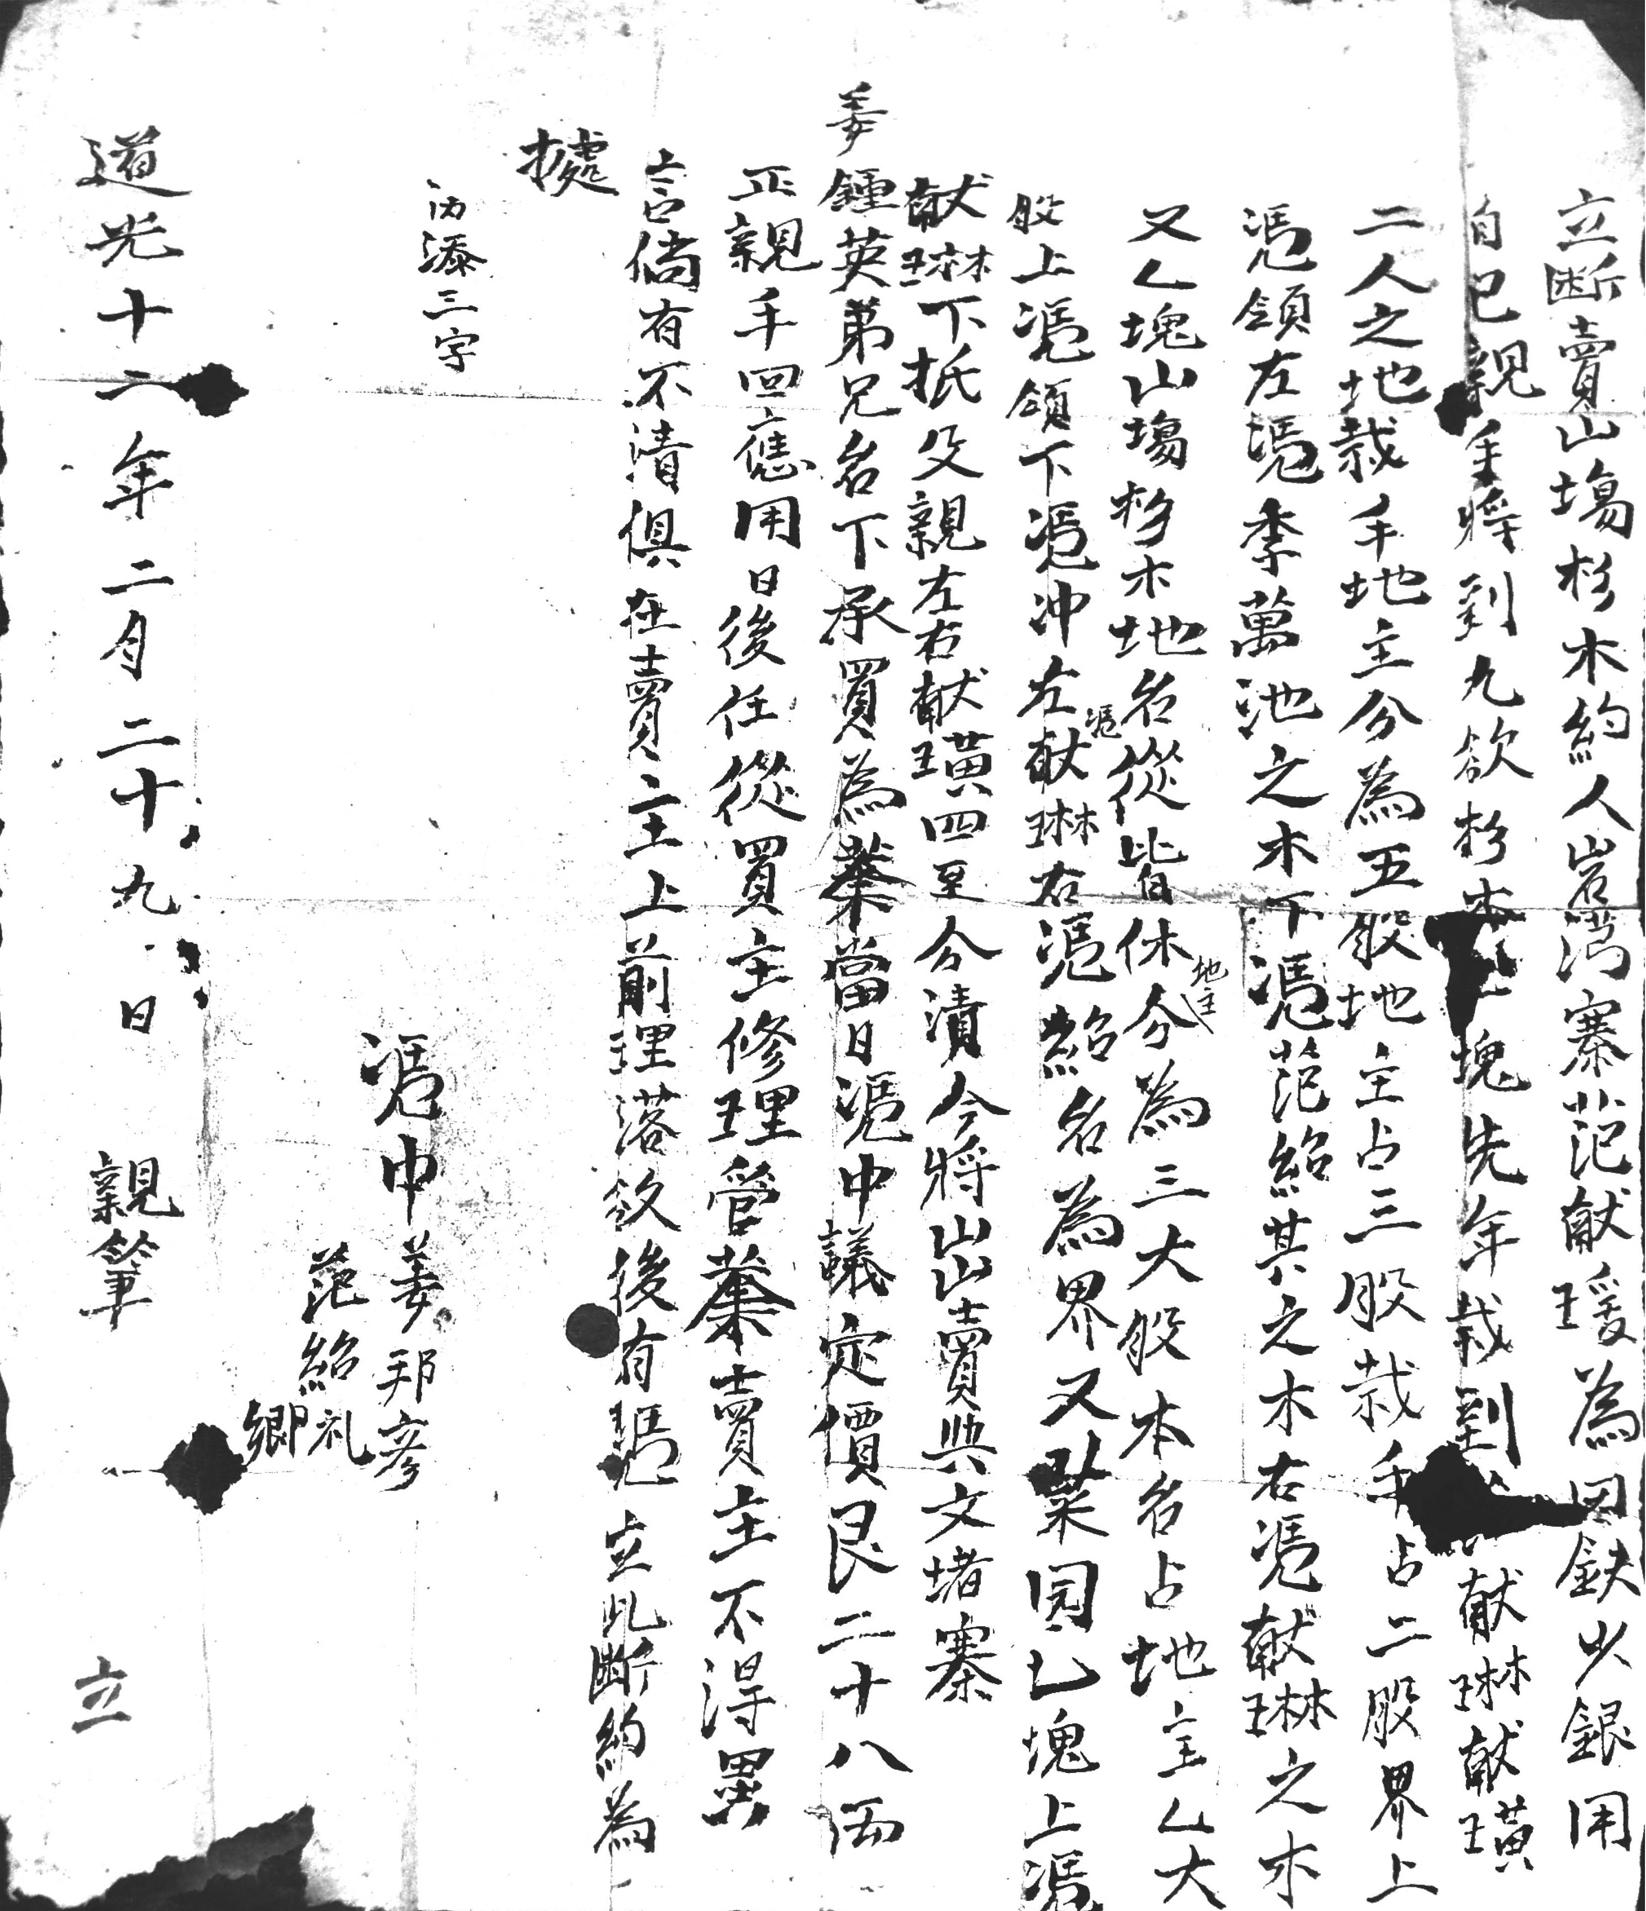 立斷賣山塲杉木約人岩湾寨范献瑗為因缺少銀用
自己親手將到九欲杉木塊先年栽到献琳献璜
二人之地栽手地主分為五股地主占三股栽手占二股界上
凴領左凴李萬池之木下凴范紹其之木右凴献琳之木
又乙塊山塲杉木地名從皆休地主分為三大股本名占地主乙大
股上凴領下凴冲左凴献琳右凴紹名為界又菜园乙塊上凴
献琳下抵父親左右献璜四至分清今將出賣與文堵寨
姜鍾英弟兄名下承買為業當日凴中議定價艮二十八両
正親手囬應用日後任從買主修理管業賣主不得異
言倘有不清俱在賣主上前理落欲後有凴立此斷約為
據
内添三字
凴中姜邦彥
范紹礼
卿
道光十二年二月二十九日 親筆 立